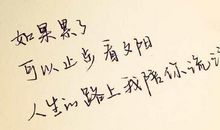 如果累了
可以止步看夕阳
人生的路上我陪你说